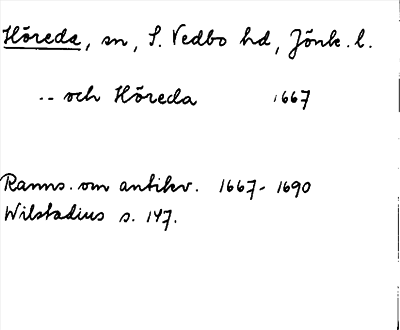 Höreda, sn, S. Vedbo hd, Jönk. l.
.. och Höreda 1667
Ranns. om antikv. 1667-1690
Wilstadius s. 147.